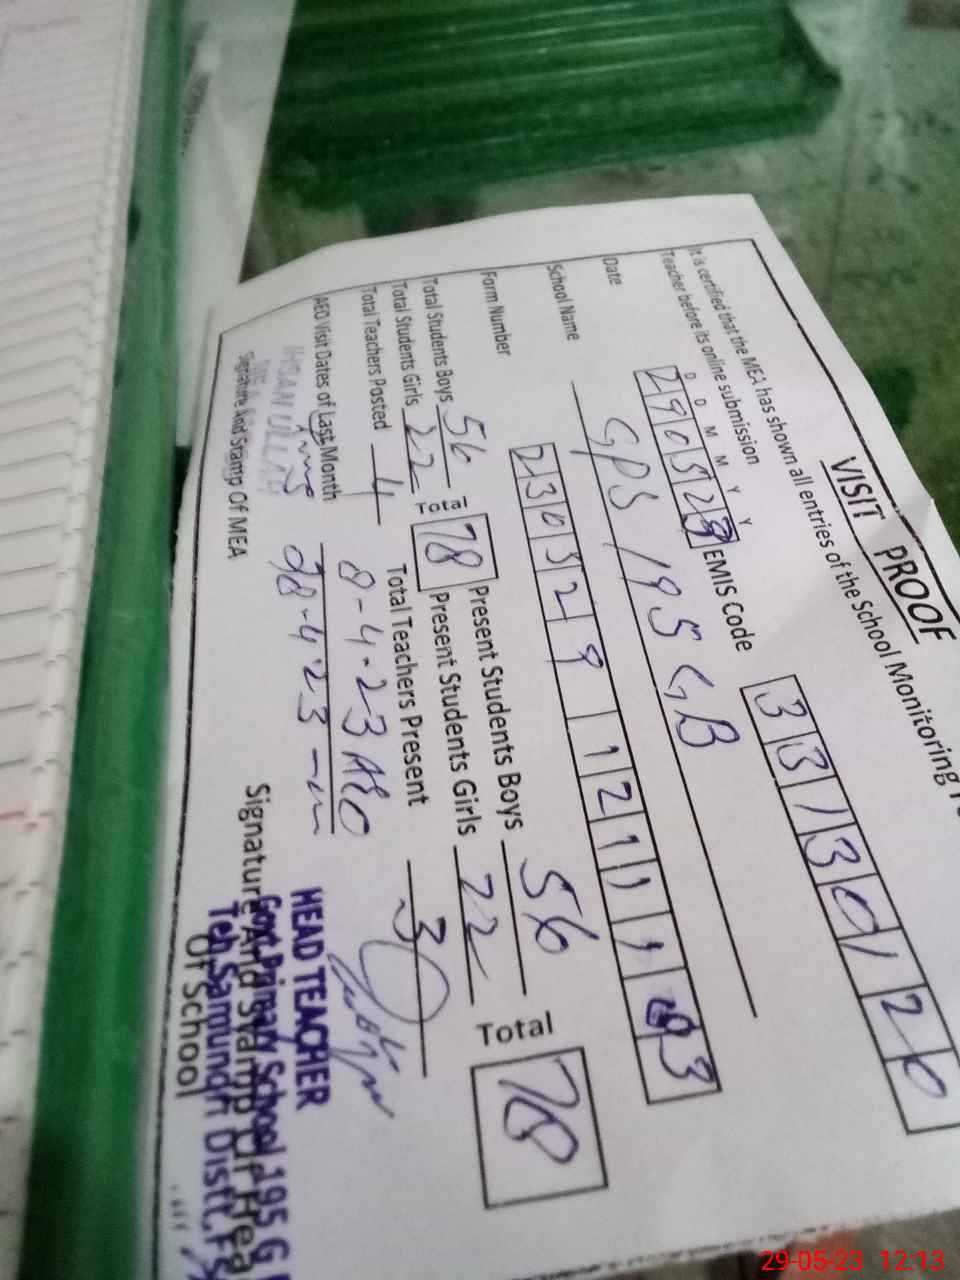 VISIT PROOF
It is certified that the MEA has shown all entries of the School Monitoring
Teacher before its online submission
D D M M Y Y
Date 290523 EMIS Code 33130120
School Name GPS 195 GB
Form Number 230529 12111
Total Students Boys 56 Total 78 Present Students Boys 56 Total 78
Total Students Girls 22 Present Students Girls 22
Total Teachers Posted 4 Total Teachers Present 3
AEO Visit Dates of Last Month 8-4-23 AEO
28-4-23
IHSAN ULLAH
MEA
Signature And Stamp Of MEA
Signature And Stamp Of Head
Of School
HEAD TEACHER
Govt. Primary School 195 G
Teh. Samundri Distt. Fs
29-05-23 12:13